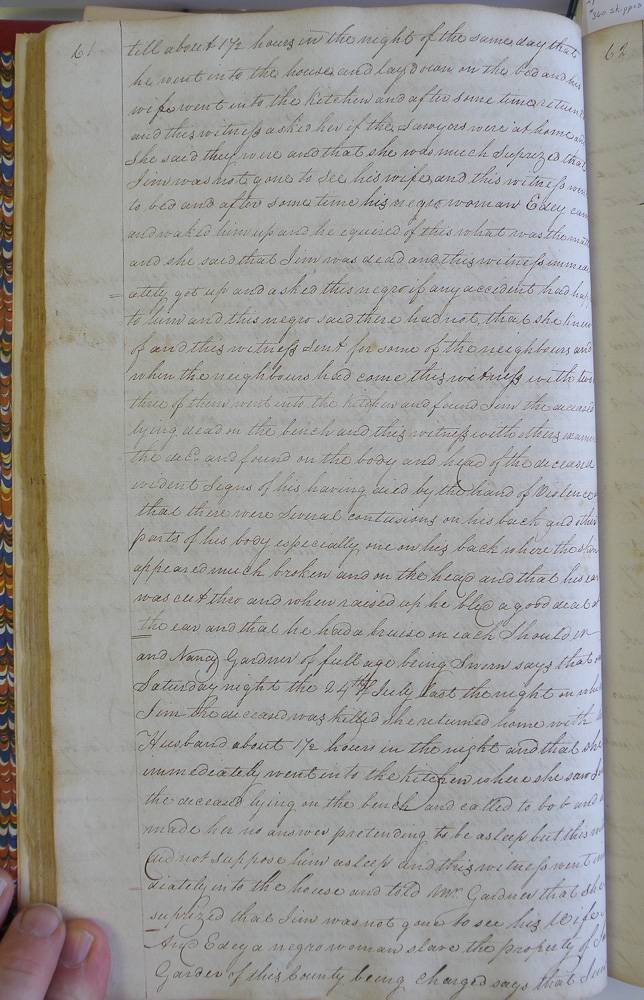 *360 skipped
61
62
till about 1½ hours in the night of the same day that
he went into the house and lay down on the bed and his
wife went into the Kitchen and after some time return
and this witness asked her if the Sawyers were at home and
She said they were and that she was much Suprized that
Jim was not gone to See his wife and this witness went
to bed and after some time his negro woman Edey came
and waked him up and he equired of this what was the matt
and she said that Jim was dead and this witness immedi
ately got up and asked this negro if any accident had hap
to him and this negro said there had not, that she knew
of and this witness Sent for some of the neighbours and
when the neighbours had come this witness with two
three of them went into the Kitchen and found Jim the deceased
lying dead on the bench and this witness with others exami
the dec.d and found on the body and head of the deceased
evident Signs of his having died by the hand of Violence
that there were Several contusions on his back and other
parts of his body especially one on his back where the skin
appeared much broken and on the head and that his ear
was cut thro and when raised up he bled a good deal
the ear and that he had a bruise on each Shoulder
and Nancy Gardner of full age being Sworn says that on
Saturday night the 24th July last the night on whi
Jim the deceased was killed She returned home with
Husband about 1½ hours in the night and that she
immediately went into the kitchen where she saw Jim
the deceased lying on the bench and called to bob and
made her no answer pretending to be asleep but this wi
did not suppose him asleep and this witness went im
diately into the house and told Mr. Gardner that she
suprized that Jim was not gone to see his Wife
And Edey a negro woman slave the property of
Garder of this County being charged says that